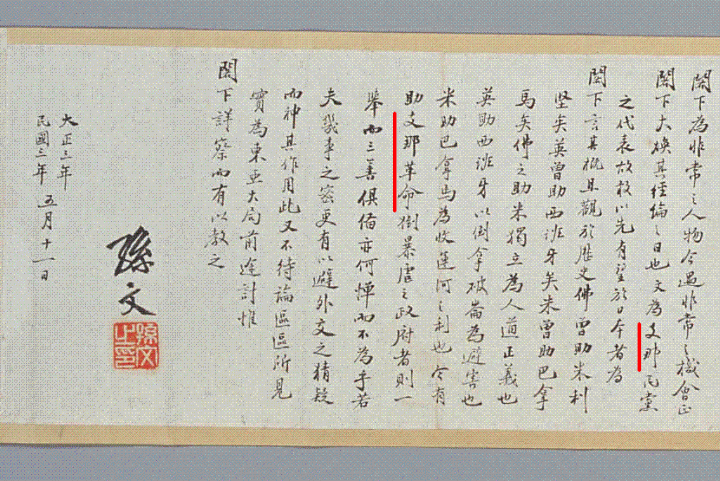 閣下為非常之人物今遇非常之機會正
閣下大展其經綸之日也文為支那民黨
之代表故敢以先有望於日本者為
閣下言其概且觀於歷史佛曾助米利
堅矣英曾助西班牙矣米曾助巴拿
馬矣佛之助米獨立為人道正義也
英助西班牙以倒拿破崙為避害也
米助巴拿馬為收運河之利也今有
助支那革命倒暴虐之政府者則一
舉而三善俱備亦何憚而不為乎若
夫幾事之密更有以避外交之猜疑
而神其作用此又不待論區區所見
實為東亞大局前途計惟
閣下詳察而有以教之
孫文
大正三年
民國三年 五月十一日
孫文之印